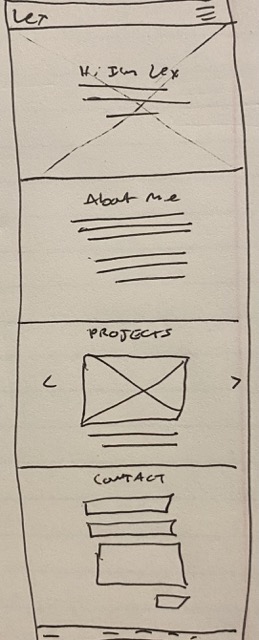 LEX
Hi Im Lex
About Me
PROJECTS
CONTACT